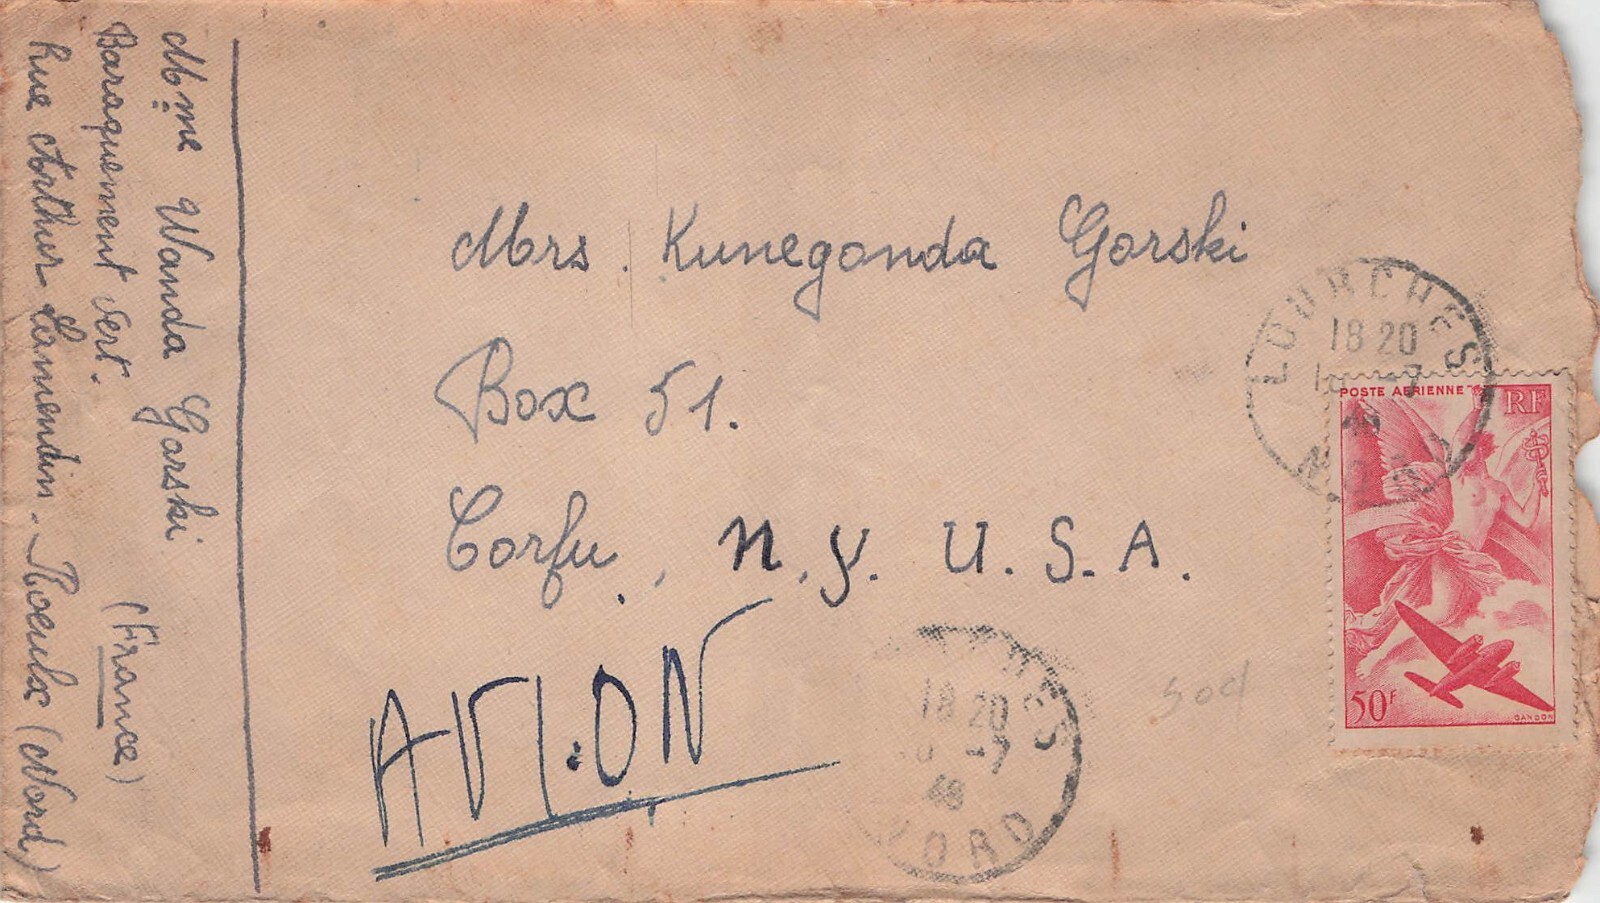 Mme Wanda Gorski
Baraquement vert.
(France)
Rue Arthur Lamendin - Roeulx (Nord)
Mrs. Kunegonda Gorski
Box 51.
Corfu, N.Y. U.S.A.
AVION
LOURCHES
18 20
-7
NORD
POSTE AERIENNE
RF
50F
GANDON
18 20
-7
48
NORD